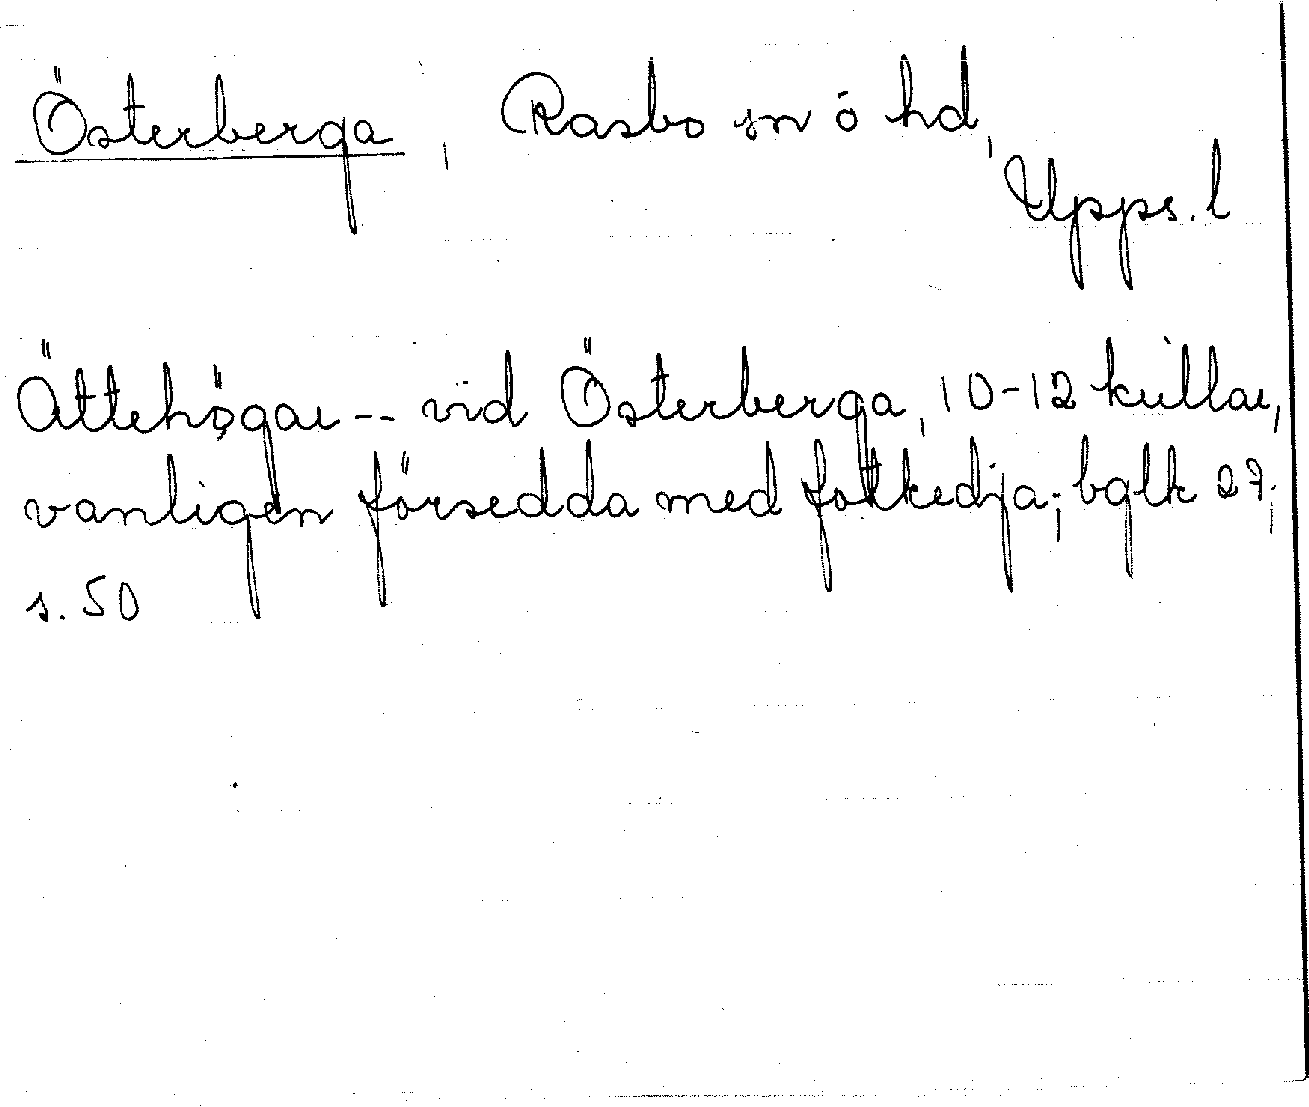 Österberga, Rasbo sn o hd,
Upps. l
Ättehögar -- vid Österberga, 10-12 kullar,
vanligen försedda med fotkedja; bglk 27;
s. 50